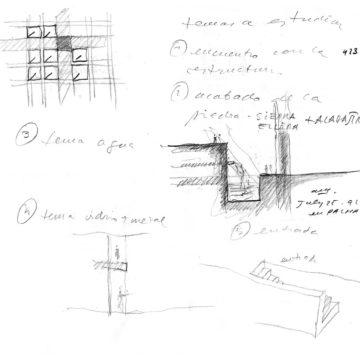 temas a estudiar
① encuentro con la
estructura.
② acabado de la
piedra - SIERRA
ELVIRA
③ tema agua
4 tema vidrio y metal
July 25. 92
en PALMA
5 entrada
entrada